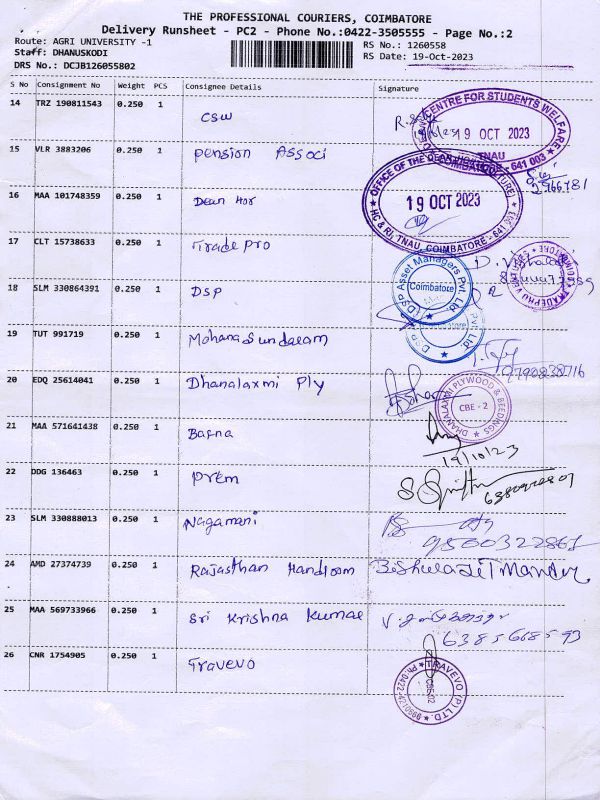 THE PROFESSIONAL COURIERS, COIMBATORE
Delivery Runsheet - PC2 - Phone No.:0422-3505555 - Page No.:2
Route: AGRI UNIVERSITY -1
RS No.: 1260558
Staff: DHANUSKODI
RS Date: 19-Oct-2023
DRS No.: DCJB126055802
S No Consignment No Weight PCS Consignee Details Signature
14 TRZ 190811543 0.250 1 CSW
CENTRE FOR STUDENTS WELFARE
19 OCT 2023
TNAU
COIMBATORE - 641 003
15 VLR 3883206 0.250 1 Pension Associ
16 MAA 101748359 0.250 1 Dean Hor
OFFICE OF THE DEAN (HORTICULTURE)
19 OCT 2023
HC & RI, TNAU, COIMBATORE - 641 003
17 CLT 15738633 0.250 1 Trade Pro
18 SLM 330864391 0.250 1 DSP
DSP Asset Managers Pvt. Ltd.
Coimbatore
19 TUT 991719 0.250 1 Mohana Sundaram
20 EDQ 25614041 0.250 1 Dhanalaxmi Ply
DHANALAXMI PLYWOOD & BEEDINGS
CBE - 2
21 MAA 571641438 0.250 1 Basna
19/10/23
22 DDG 136463 0.250 1 Prem
23 SLM 330888013 0.250 1 Nagamani
9500322861
24 AMD 27374739 0.250 1 Rajasthan Handloom
25 MAA 569733966 0.250 1 Sri Krishna Kumar
6385668593
26 CNR 1754905 0.250 1 Travevo
TRAVEVO (P) LTD.